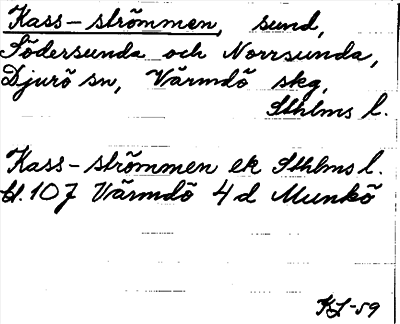 Kass-strömmen, sund,
Södersunda och Norrsunda,
Djurö sn, Värmdö skg,
Sthlms l.
Kass-strömmen ek Sthlms l.
bl. 107 Värmdö 4d Munkö
KL-59